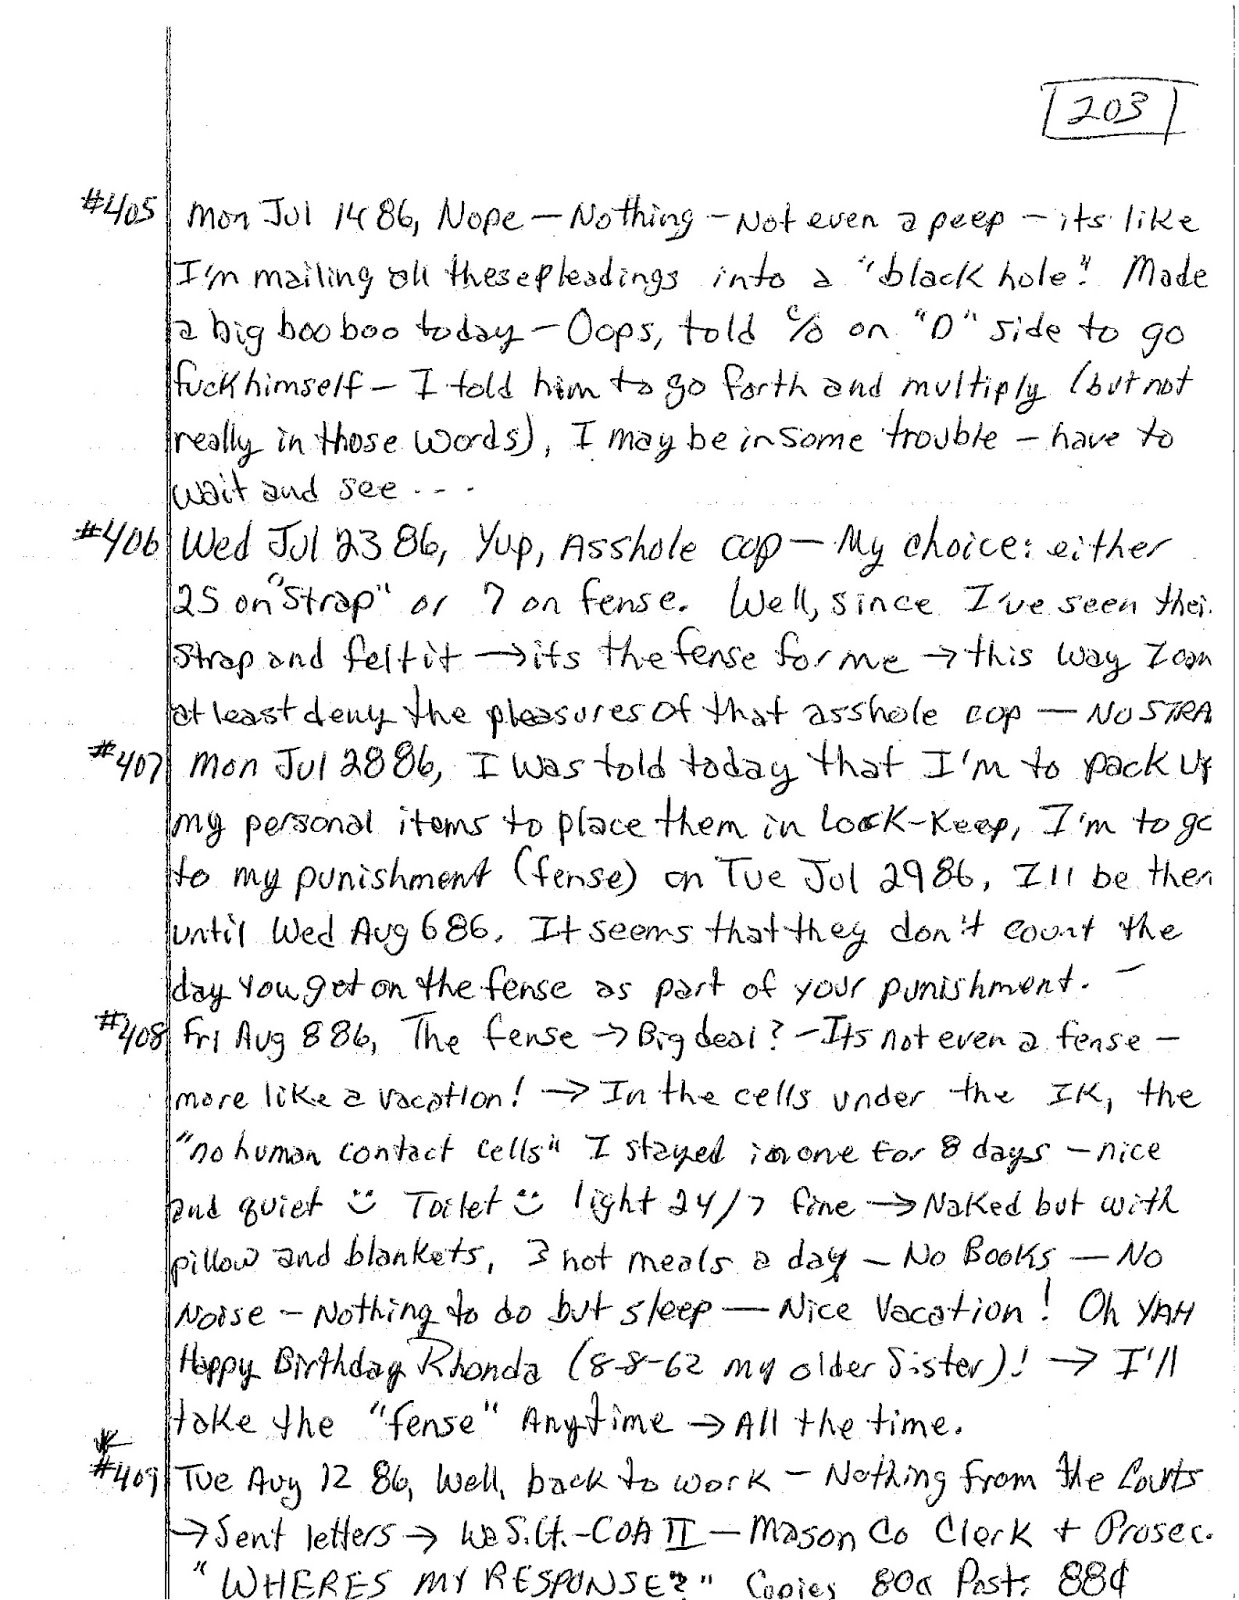 203
#405 Mon Jul 14 86, Nope — Nothing — Not even a peep — its like
I'm mailing all these pleadings into a "black hole". Made
a big boo boo today — Oops, told c/o on "D" side to go
fuck himself — I told him to go forth and multiply (but not
really in those words), I may be in some trouble — have to
wait and see - - -
#406 Wed Jul 23 86, Yup, Asshole cop — My choice: either
25 on "Strap" or 7 on fense. Well, since I've seen thei
strap and felt it → its the fense for me → this way I can
at least deny the pleasures of that asshole cop — NO STRA
#407 Mon Jul 28 86, I was told today that I'm to pack up
my personal items to place them in Lock-Keep, I'm to go
to my punishment (fense) on Tue Jul 29 86, I'll be ther
until Wed Aug 6 86. It seems that they don't count the
day you get on the fense as part of your punishment. —
#408 Fri Aug 8 86, The fense → Big deal? — Its not even a fense —
more like a vacation! → In the cells under the IK, the
"no human contact cells" I stayed in one for 8 days — nice
and quiet Toilet light 24/7 fine → Naked but with
pillow and blankets, 3 hot meals a day — No Books — No
Noise — Nothing to do but sleep — Nice Vacation! Oh YAH
Happy Birthday Rhonda (8-8-62 my older Sister)! → I'll
take the "fense" Anytime → All the time.
#409 Tue Aug 12 86, Well, back to work — Nothing from the Courts
→ Sent letters → Wa S.Ct. - COA II — Mason Co Clerk + Prosec.
"WHERES MY RESPONSE?" Copies 80¢ Post: 88¢